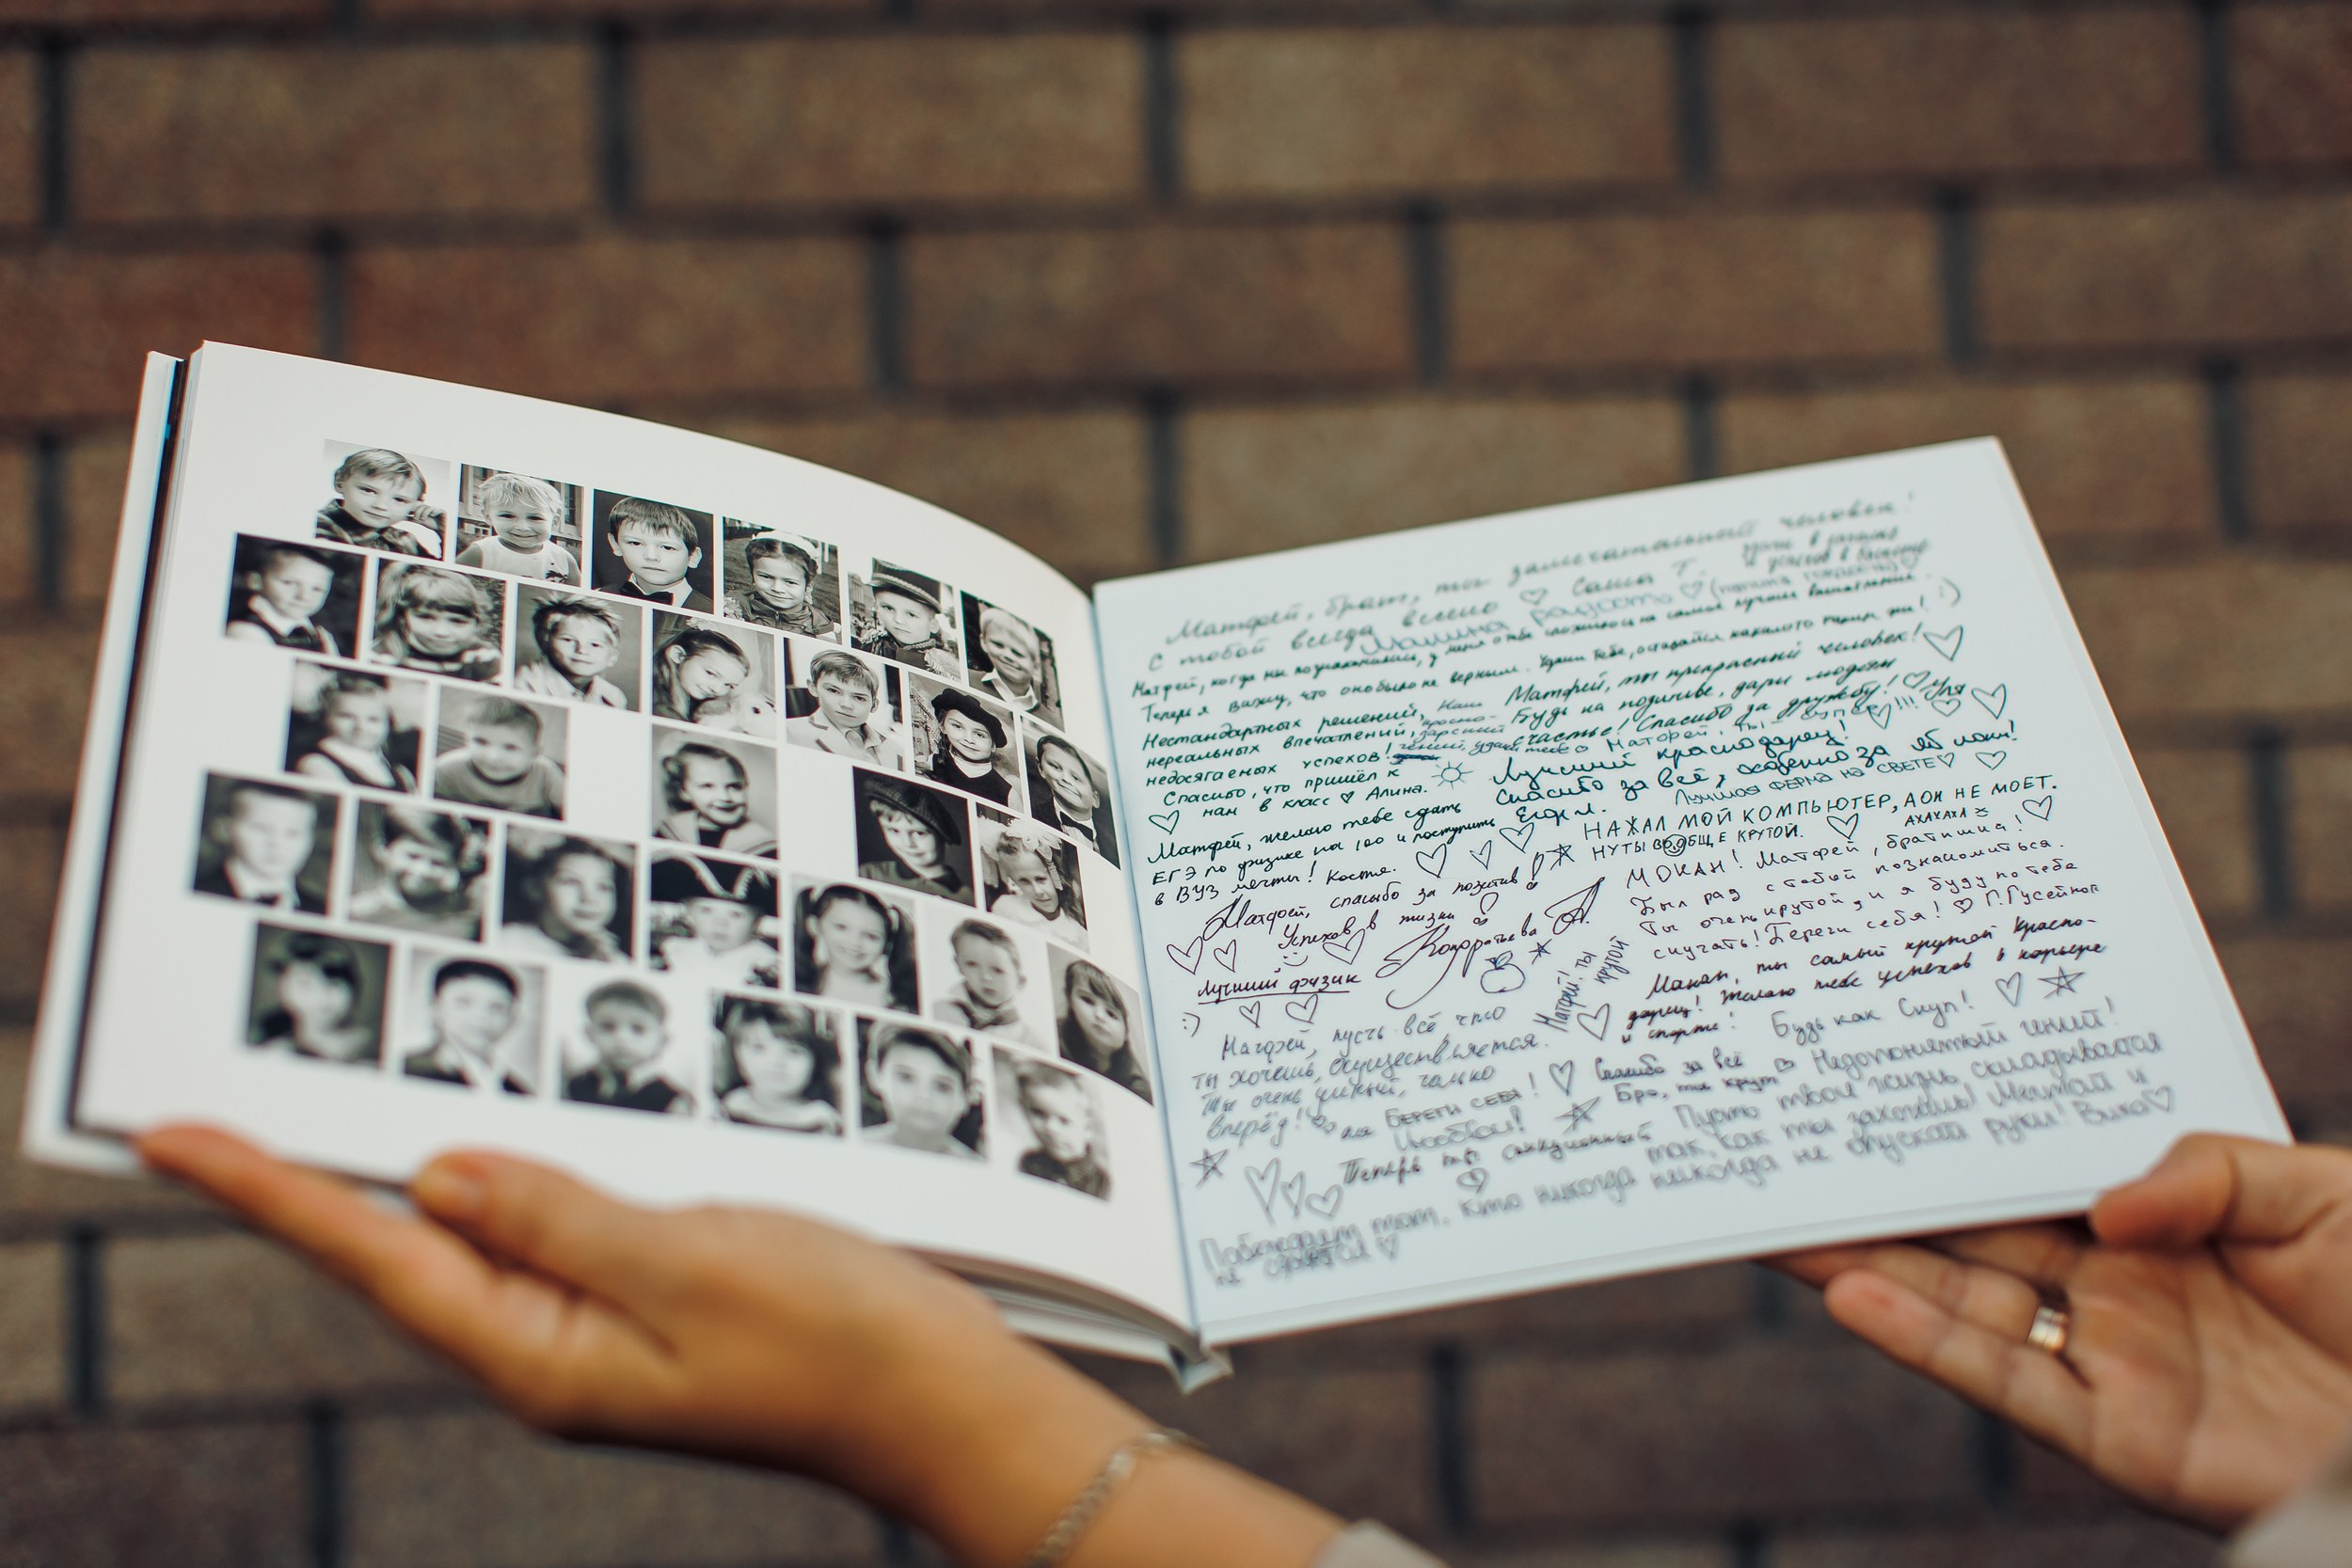 Матфей, брат, ты замечательный человек!
С тобой всегда весело ♡ Саша Т.
Мамина радость ♡ (папина гордость) ♡
Матфей, когда мы познакомились, у меня о тебе сложилось не самое лучшее впечатление.
Теперь я вижу, что оно было не верным. Удачи тебе, оставайся таким же! :)
Нестандартных решений,
нереальных впечатлений,
недосягаемых успехов!
Спасибо, что пришёл к
нам в класс ♡ Алина.
Матфей, ты прекрасный человек!
Будь на позитиве, дари людям
счастье! Спасибо за дружбу! ♡ Уля
Матфей, ты - супер!!!
Лучший краснодарец!
Спасибо за всё, особенно за яблоки!
Егор Л.
Лучшая ФЕРМА НА СВЕТЕ ♡
Матфей, желаю тебе сдать
ЕГЭ по физике на 100 и поступить
в ВУЗ мечты! Костя.
НАЖАЛ МОЙ КОМПЬЮТЕР, А ОН НЕ МОЕТ.
АХАХАХА
НУ ТЫ ВООБЩЕ КРУТОЙ.
Матфей, спасибо за позитив!
Успехов в жизни
Кондратьева А.
Лучший физик
:)
МОКАН! Матфей, братишка!
Был рад с тобой познакомиться.
Ты очень крутой, и я буду по тебе
скучать! Береги себя! ♡ Г. Гусейнов
Матфей! ты
крутой
Мокан, ты самый крутой красно-
дарец! Желаю тебе успехов в карьере
и спорте!
Будь как Снуп!
Матфей, пусть всё что
ты хочешь, осуществляется.
Ты очень умный, только
вперёд!
БЕРЕГИ СЕБЯ!
Спасибо за всё
Бро, ты крут
Недопонятый гений!
Теперь ты
Пусть твоя жизнь складывается
так, как ты захочешь! Мечтай и
никогда не опускай руки! Вика ♡
Побеждает тот, кто никогда
не сдаётся ♡